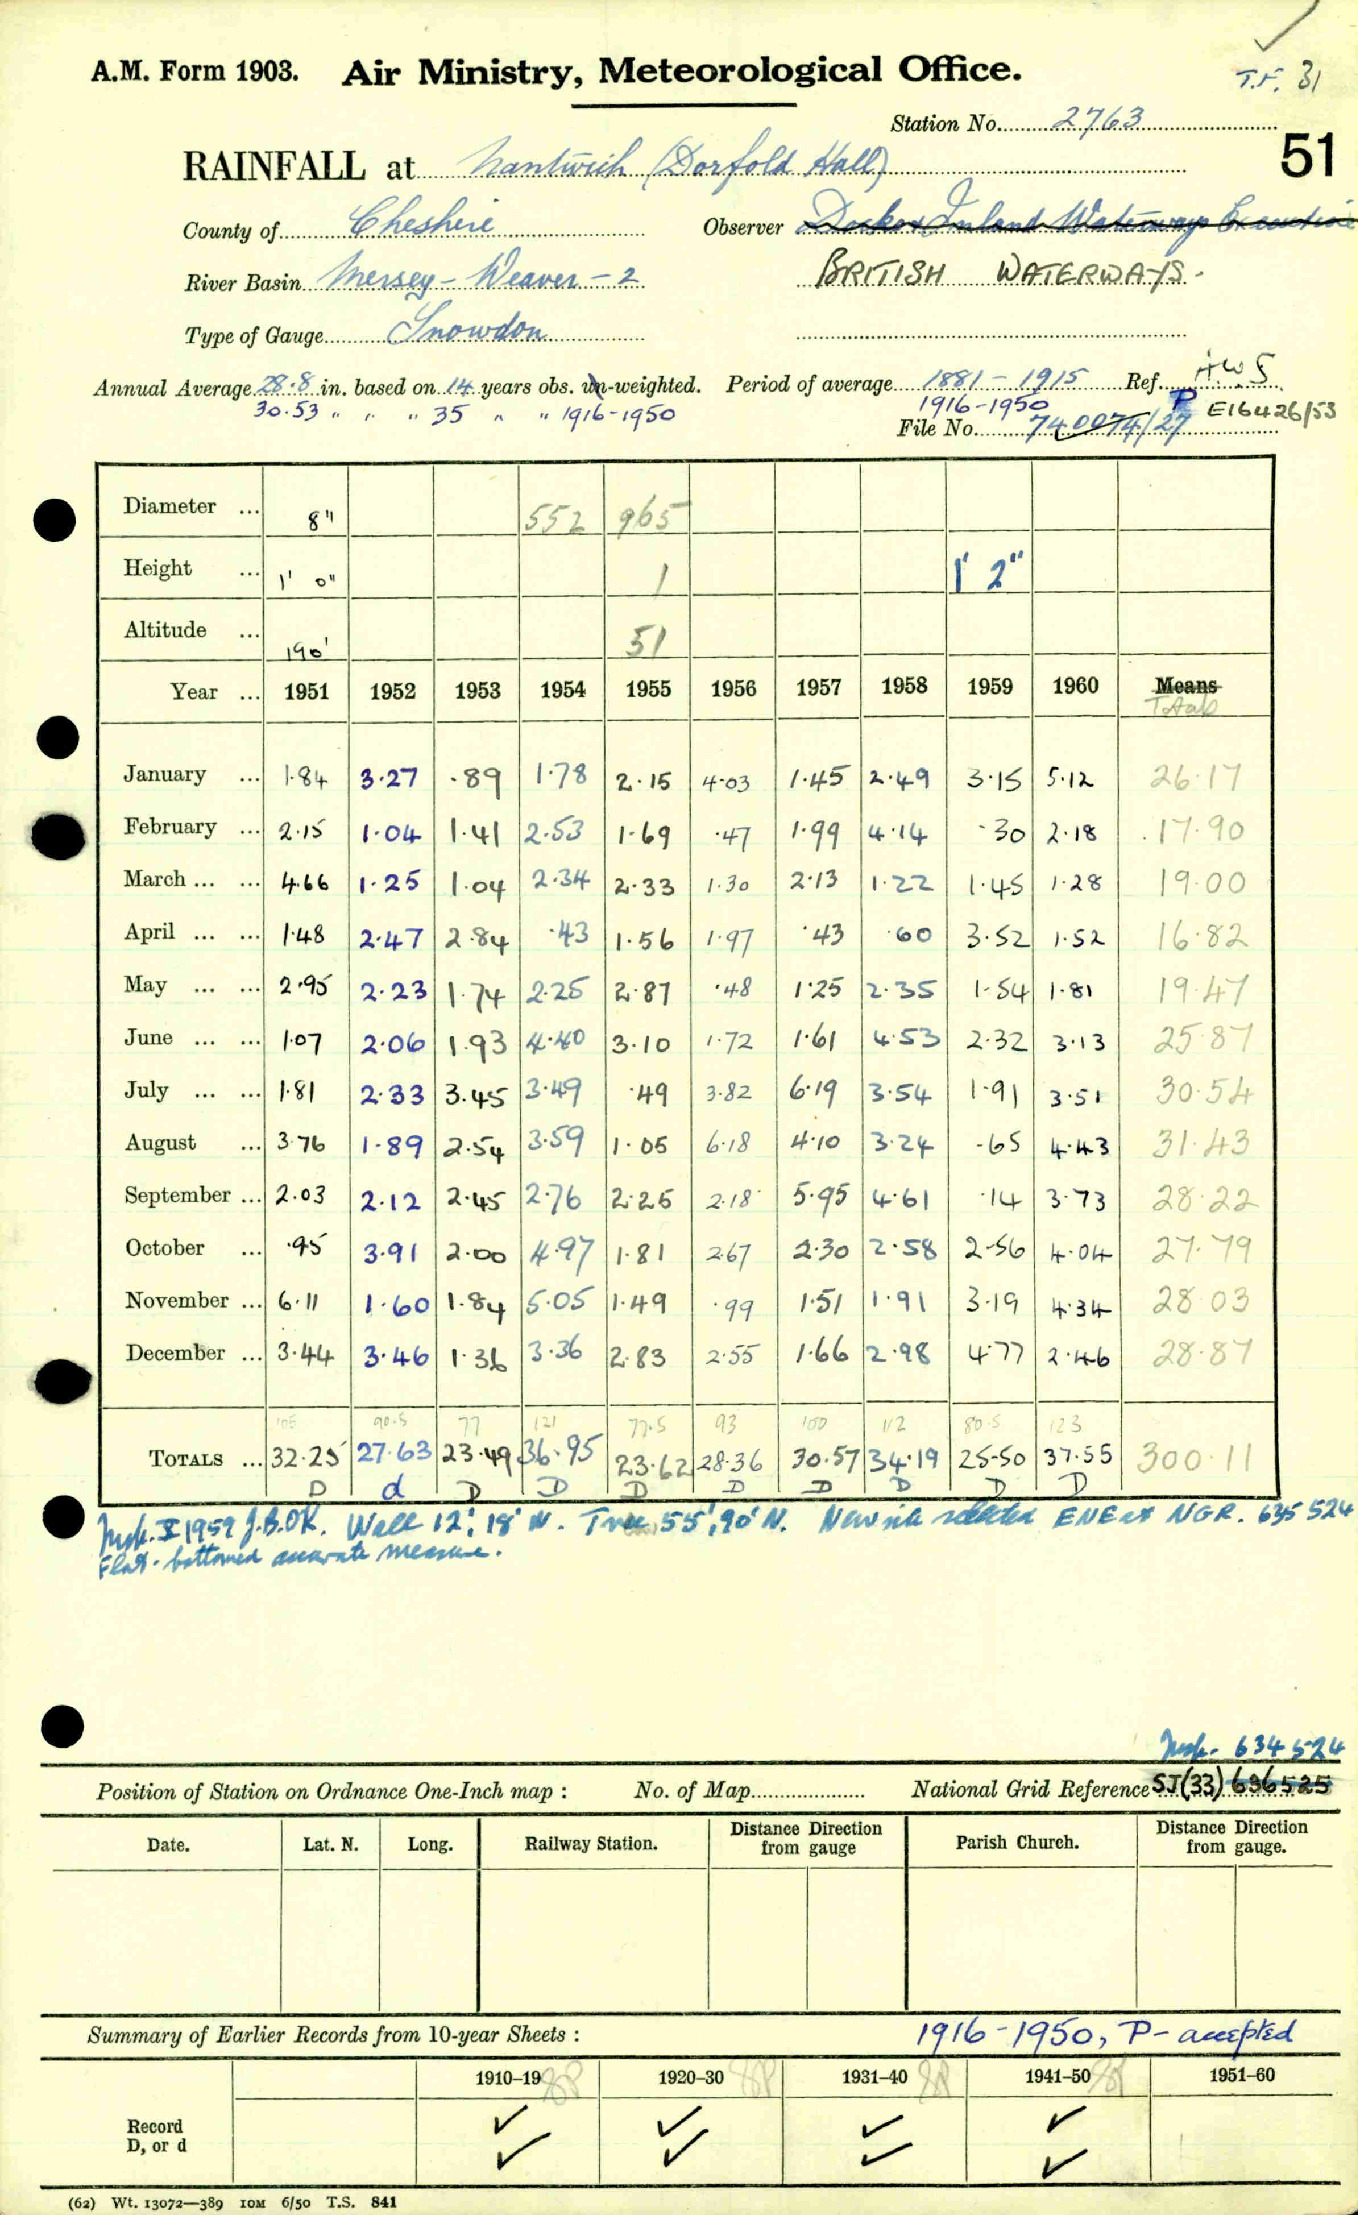 A.M. Form 1903. Air Ministry, Meteorological Office.
T.F. 31
Station No. 2763
51
RAINFALL at Nantwich (Dorfold Hall)
County of Cheshire Observer Docks & Inland Waterways Executive
River Basin Mersey - Weaver - 2 BRITISH WATERWAYS.
Type of Gauge Snowdon
Annual Average 28.8 in. based on 14 years obs. un-weighted. Period of average 1881 - 1915 Ref. HWS
30.53 " " " 35 " " 1916-1950 1916-1950 P E16426/53
File No. 740074/27
Diameter ... 8" 552 965
Height ... 1' 0" 1 1' 2"
Altitude ... 190' 51
Year ... 1951 1952 1953 1954 1955 1956 1957 1958 1959 1960 Means
Totals
January ... 1.84 3.27 .89 1.78 2.15 4.03 1.45 2.49 3.15 5.12 26.17
February ... 2.15 1.04 1.41 2.53 1.69 .47 1.99 4.14 .30 2.18 17.90
March ... ... 4.66 1.25 1.04 2.34 2.33 1.30 2.13 1.22 1.45 1.28 19.00
April ... ... 1.48 2.47 2.84 .43 1.56 1.97 .43 .60 3.52 1.52 16.82
May ... ... 2.95 2.23 1.74 2.25 2.87 .48 1.25 2.35 1.54 1.81 19.47
June ... ... 1.07 2.06 1.93 4.40 3.10 1.72 1.61 4.53 2.32 3.13 25.87
July ... ... 1.81 2.33 3.45 3.49 .49 3.82 6.19 3.54 1.91 3.51 30.54
August ... 3.76 1.89 2.54 3.59 1.05 6.18 4.10 3.24 .65 4.43 31.43
September ... 2.03 2.12 2.45 2.76 2.25 2.18 5.95 4.61 .14 3.73 28.22
October ... .95 3.91 2.00 4.97 1.81 2.67 2.30 2.58 2.56 4.04 27.79
November ... 6.11 1.60 1.84 5.05 1.49 .99 1.51 1.91 3.19 4.34 28.03
December ... 3.44 3.46 1.36 3.36 2.83 2.55 1.66 2.98 4.77 2.46 28.87
105 90.5 77 121 77.5 93 100 112 80.5 123
TOTALS ... 32.25 27.63 23.49 36.95 23.62 28.36 30.57 34.19 25.50 37.55 300.11
D d D D D D D D D D
Insp. X 1959 J.B. OK. Wall 12', 18' N. Tree 55', 90' N. New site selected ENE at NGR. 635 524
Flat-bottomed accurate measure.
Insp. 634 524
Position of Station on Ordnance One-Inch map : No. of Map National Grid Reference SJ(33) 636525
Date. Lat. N. Long. Railway Station. Distance Direction from gauge Parish Church. Distance Direction from gauge.
Summary of Earlier Records from 10-year Sheets : 1916-1950, P- accepted
1910-19 1920-30 1931-40 1941-50 1951-60
Record
D, or d
(62) Wt. 13072—389 10M 6/50 T.S. 841